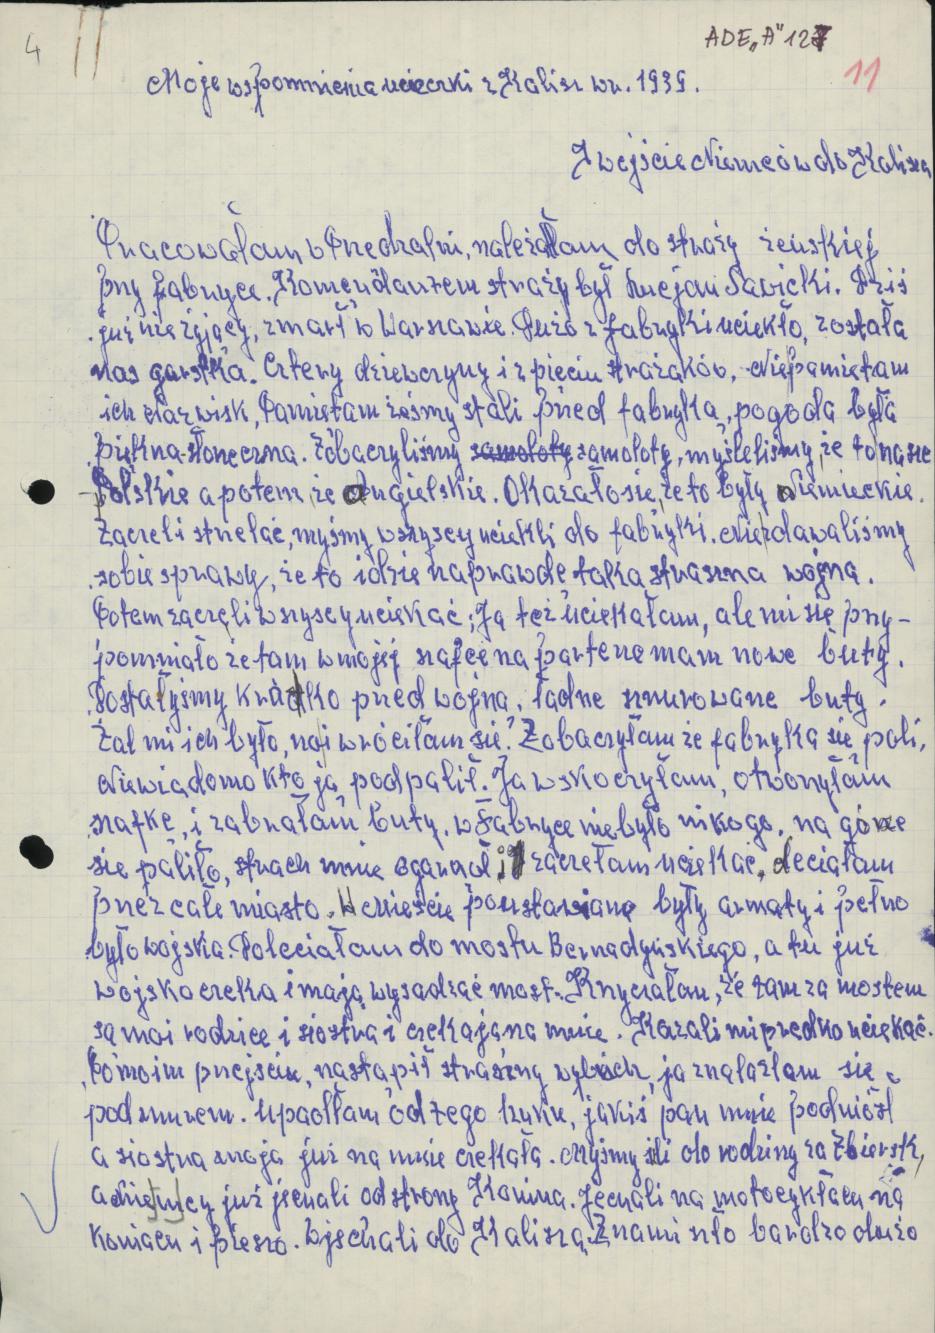 4
ADE„A"127
11
Moje wspomnienia ucieczki z Kalisz w r. 1939.
I wejście Niemców do Kalisza
Pracowałam w Przedzalni, należałam do straży żeńskiej
przy fabryce. Komendantem straży był Lucjan Sawicki. Dziś
już nie żyjący, zmarł w Warszawie. Dużo z fabryki uciekło, została
nas garstka. Cztery dziewczyny i z pięciu strażaków. Nie pamiętam
ich nazwisk, Pamiętam żeśmy stali przed fabryką, pogoda była
piękna-słoneczna. Zobaczyliśmy samoloty samoloty, myśleliśmy, że to nasze
Polskie a potem, że angielskie. Okazało sie, że to były niemieckie.
Zaczeli strzelać, myśmy wszyscy uciekli do fabryki. Niezdawaliśmy
sobie sprawy, że to idzie naprawde taka straszna wojna.
Potem zaczęli wszyscy uciekać; Ja też uciekałam, ale mi się przy-
pomniało ze tam w mojej szafce na parterze mam nowe buty.
Dostałyśmy krótko przed wojną, ładne sznurowane buty.
Żal mi ich było, no i wróciłam się. Zobaczyłam że fabryka się pali,
Niewiadomo kto ją podpalił. Ja wskoczyłam, otworzyłam
szafkę, i zabrałam buty. w fabryce nie było nikogo, na górze
się paliło, strach mnie ogarnął i zaczełam uciekać, leciałam
przez całe miasto. W mieście poustawiane były armaty i pełno
było wojska. Poleciałam do mostu Bernadyńskiego, a tu już
wojsko czeka i mają wysadzać most. Krzyczałam, że tam za mostem
są moi rodzice i siostra i czekają na mnie. Kazali mi prędko uciekać.
Po moim przejściu, nastąpił straszny wybuch, ja znalazłam się
pod murem. Upadłam od tego huku, jakiś pan mnie podniósł
a siostra moja już na mnie czekała. Myśmy szli do rodziny za Zbiersk,
a Niemcy już jechali od strony Konina. Jechali na motocyklach na
koniach i pieszo. Wjechali do Kalisza. Z nami szło bardzo dużo